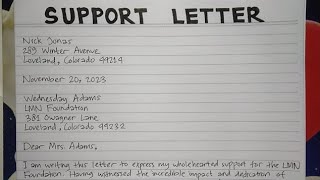 SUPPORT LETTER
Nick Jonas
289 Winter Avenue
Loveland, Colorado 49214
November 20, 2023
Wednesday Adams
LMN Foundation
381 Owagner Lane
Loveland, Colorado 49232
Dear Mrs. Adams,
I am writing this letter to express my wholehearted support for the LMN
Foundation. Having witnessed the incredible impact and dedication of